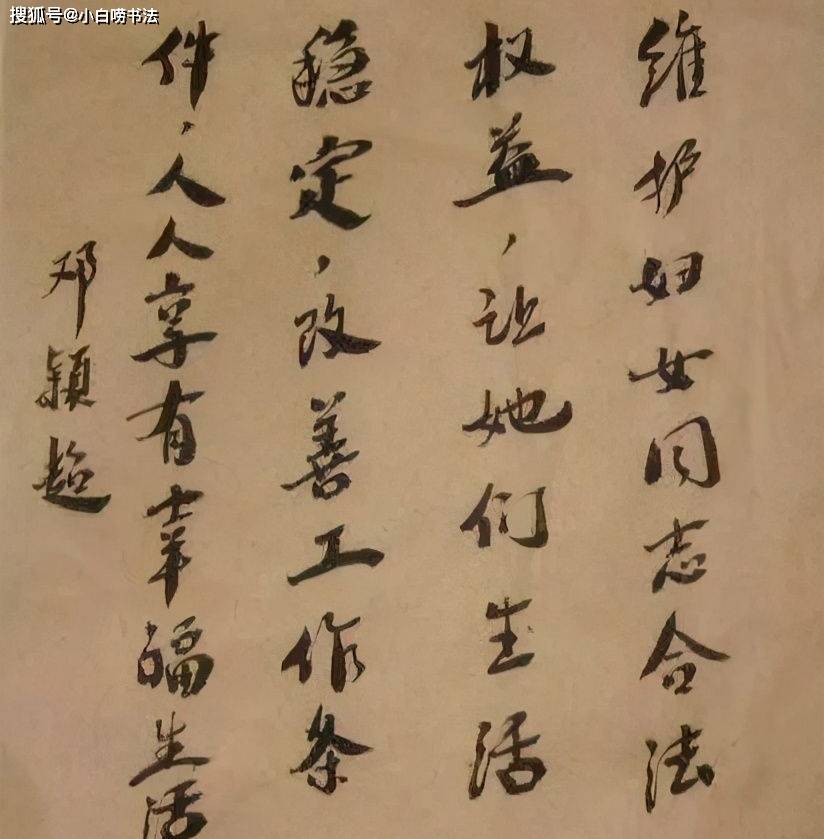 搜狐号@小白唠书法
维护妇女同志合法
权益,让她们生活
稳定,改善工作条
件,人人享有幸福生活
邓颖超